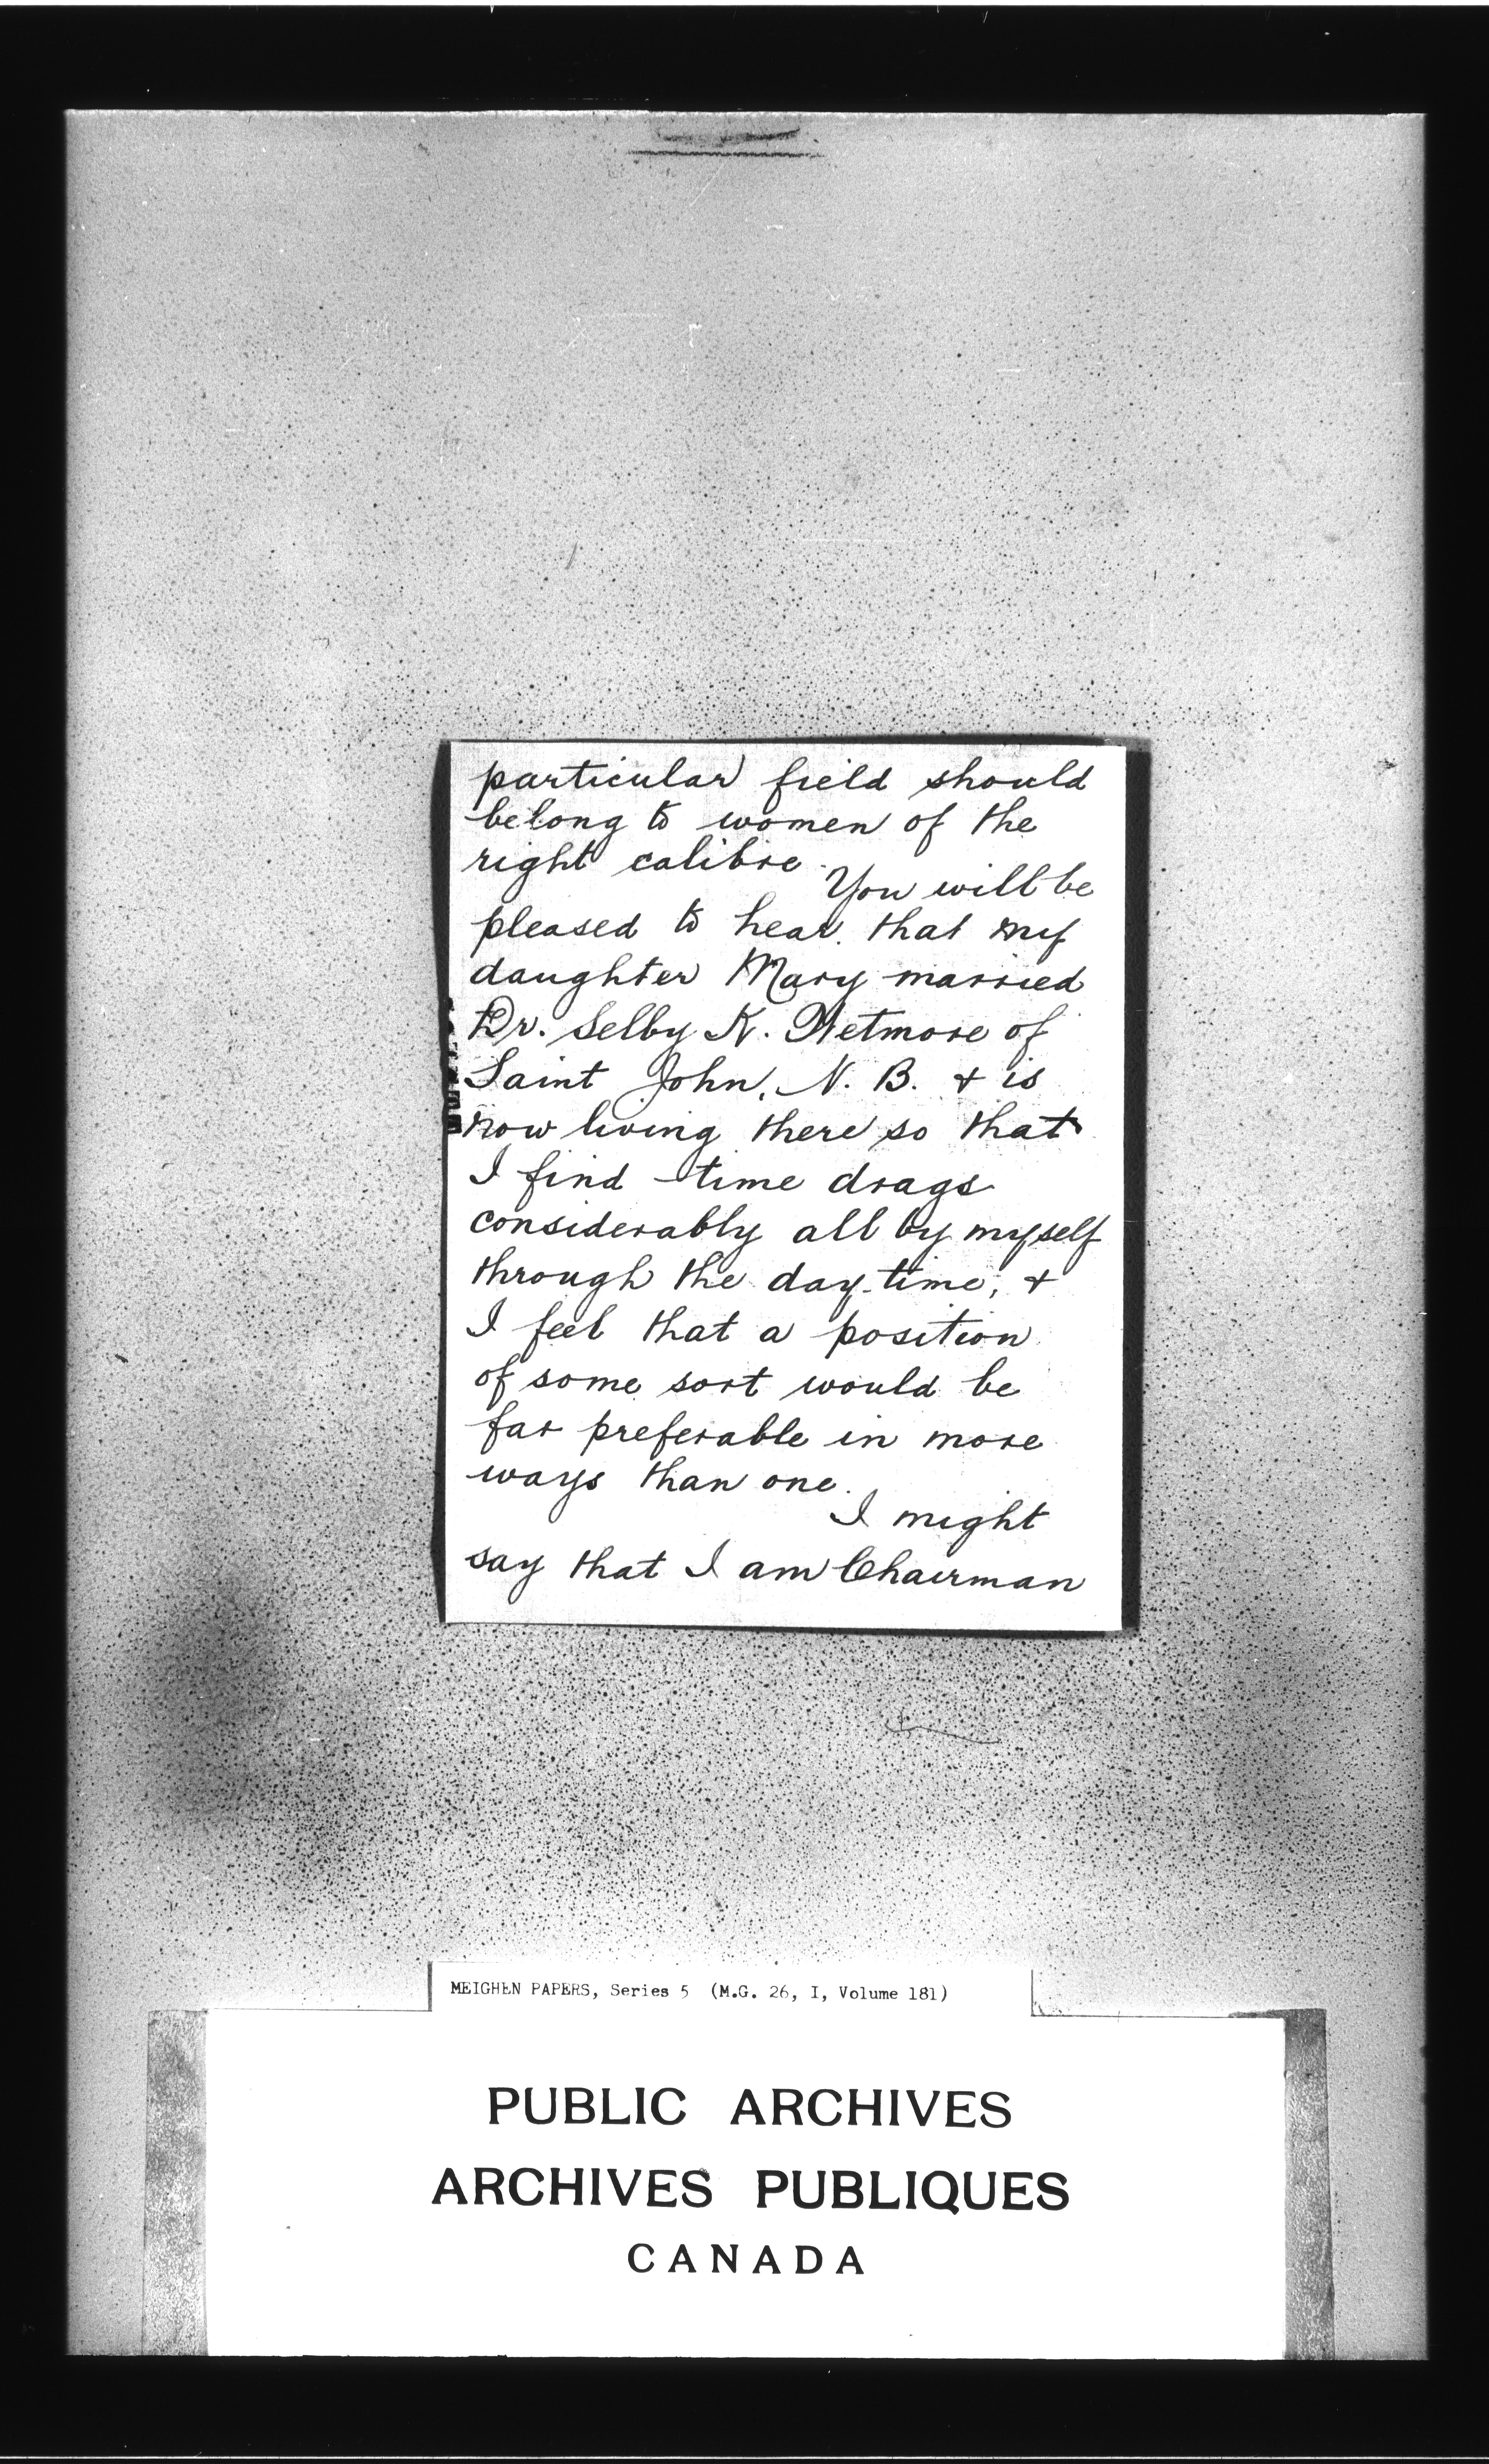 particular field should
belong to women of the
right calibre.
You will be
pleased to hear that my
daughter Mary married
Dr. Selby K. Wetmore of
Saint John, N. B. & is
now living there so that
I find time drags
considerably all by myself
through the day-time, &
I feel that a position
of some sort would be
far preferable in more
ways than one.
I might
say that I am Chairman
MEIGHEN PAPERS, Series 5 (M.G. 26, I, Volume 181)
PUBLIC ARCHIVES
ARCHIVES PUBLIQUES
CANADA